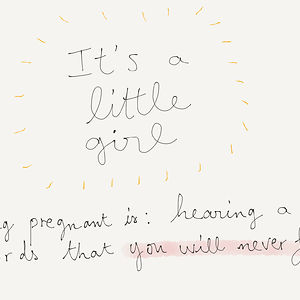 It's a
little
girl
pregnant is: hearing a
that you will never